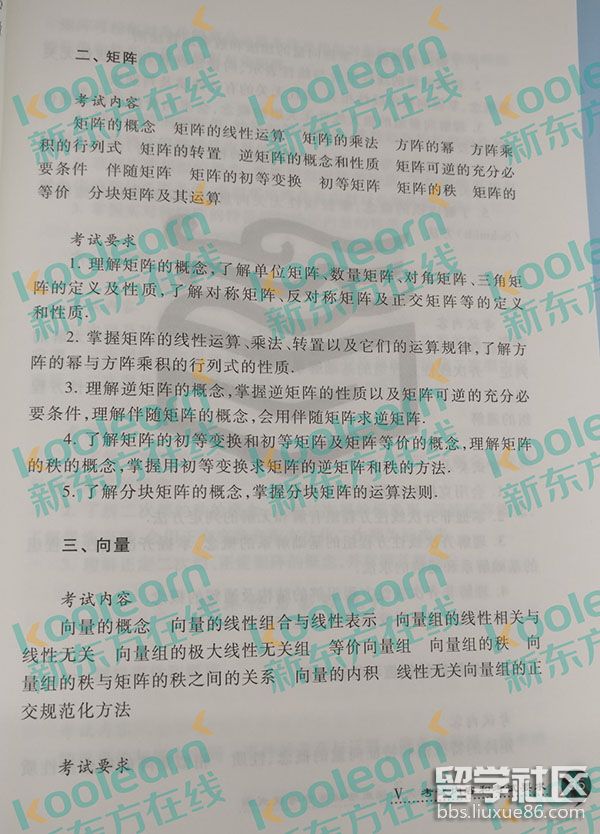 二、矩阵
考试内容
矩阵的概念 矩阵的线性运算 矩阵的乘法 方阵的幂 方阵乘
积的行列式 矩阵的转置 逆矩阵的概念和性质 矩阵可逆的充分必
要条件 伴随矩阵 矩阵的初等变换 初等矩阵 矩阵的秩 矩阵的
等价 分块矩阵及其运算
考试要求
1. 理解矩阵的概念,了解单位矩阵、数量矩阵、对角矩阵、三角矩
阵的定义及性质,了解对称矩阵、反对称矩阵及正交矩阵等的定义
和性质.
2. 掌握矩阵的线性运算、乘法、转置以及它们的运算规律,了解方
阵的幂与方阵乘积的行列式的性质.
3. 理解逆矩阵的概念,掌握逆矩阵的性质以及矩阵可逆的充分必
要条件,理解伴随矩阵的概念,会用伴随矩阵求逆矩阵.
4. 了解矩阵的初等变换和初等矩阵及矩阵等价的概念,理解矩阵
的秩的概念,掌握用初等变换求矩阵的逆矩阵和秩的方法.
5. 了解分块矩阵的概念,掌握分块矩阵的运算法则.
三、向量
考试内容
向量的概念 向量的线性组合与线性表示 向量组的线性相关与
线性无关 向量组的极大线性无关组 等价向量组 向量组的秩 向
量组的秩与矩阵的秩之间的关系 向量的内积 线性无关向量组的正
交规范化方法
考试要求
V 考
koolearn
新东方在线
留学社区
bbs.liuxue86.com